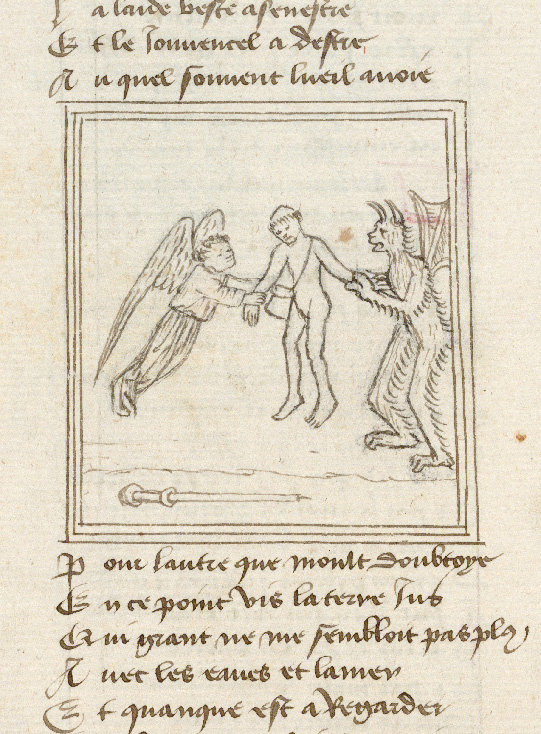 a laide beste a senestre
E t le Jouvencel a destre
A u quel souvent lueil avoie
P our lautre que moult doubtoye
E n ce point vis la terre Jus
Q ui grant ne me sembloit pas plus
A vec les eaues et la mer
E t quanque est a Regarder